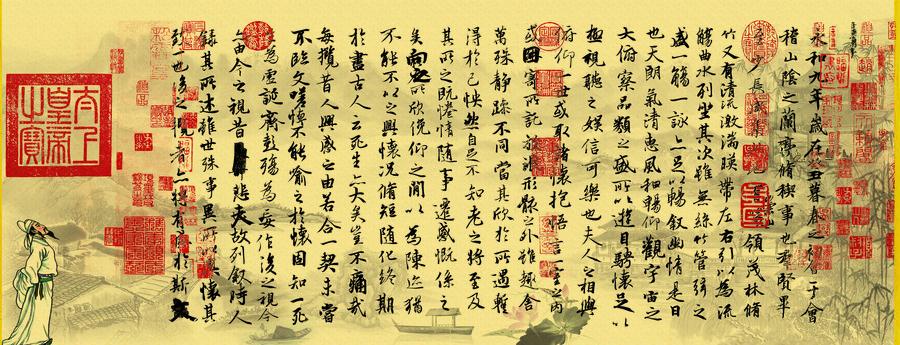 永和九年歲在癸丑暮春之初會于會
稽山陰之蘭亭脩稧事也群賢畢
至少長咸集此地有領茂林脩
竹又有清流激湍暎帶左右引以為流
觴曲水列坐其次雖無絲竹管弦之
盛一觴一詠亦足以暢敘幽情是日
也天朗氣清惠風和暢仰觀宇宙之
大俯察品類之盛所以遊目騁懷足以
極視聽之娛信可樂也夫人之相與
俯仰一世或取諸懷抱悟言一室之內
或因寄所託放浪形骸之外雖趣舍
萬殊靜躁不同當其欣於所遇暫
得於己怏然自足不知老之將至及
其所之既惓情隨事遷感慨係之
矣向之所欣俛仰之閒以為陳迹猶
不能不以之興懷況脩短隨化終期
於盡古人云死生亦大矣豈不痛哉
每攬昔人興感之由若合一契未嘗
不臨文嗟悼不能喻之於懷固知一死
生為虛誕齊彭殤為妄作後之視今
亦由今之視昔悲夫故列敘時人
錄其所述雖世殊事異所以興懷其
致一也後之攬者亦將有感於斯文
太上
皇帝
之寶